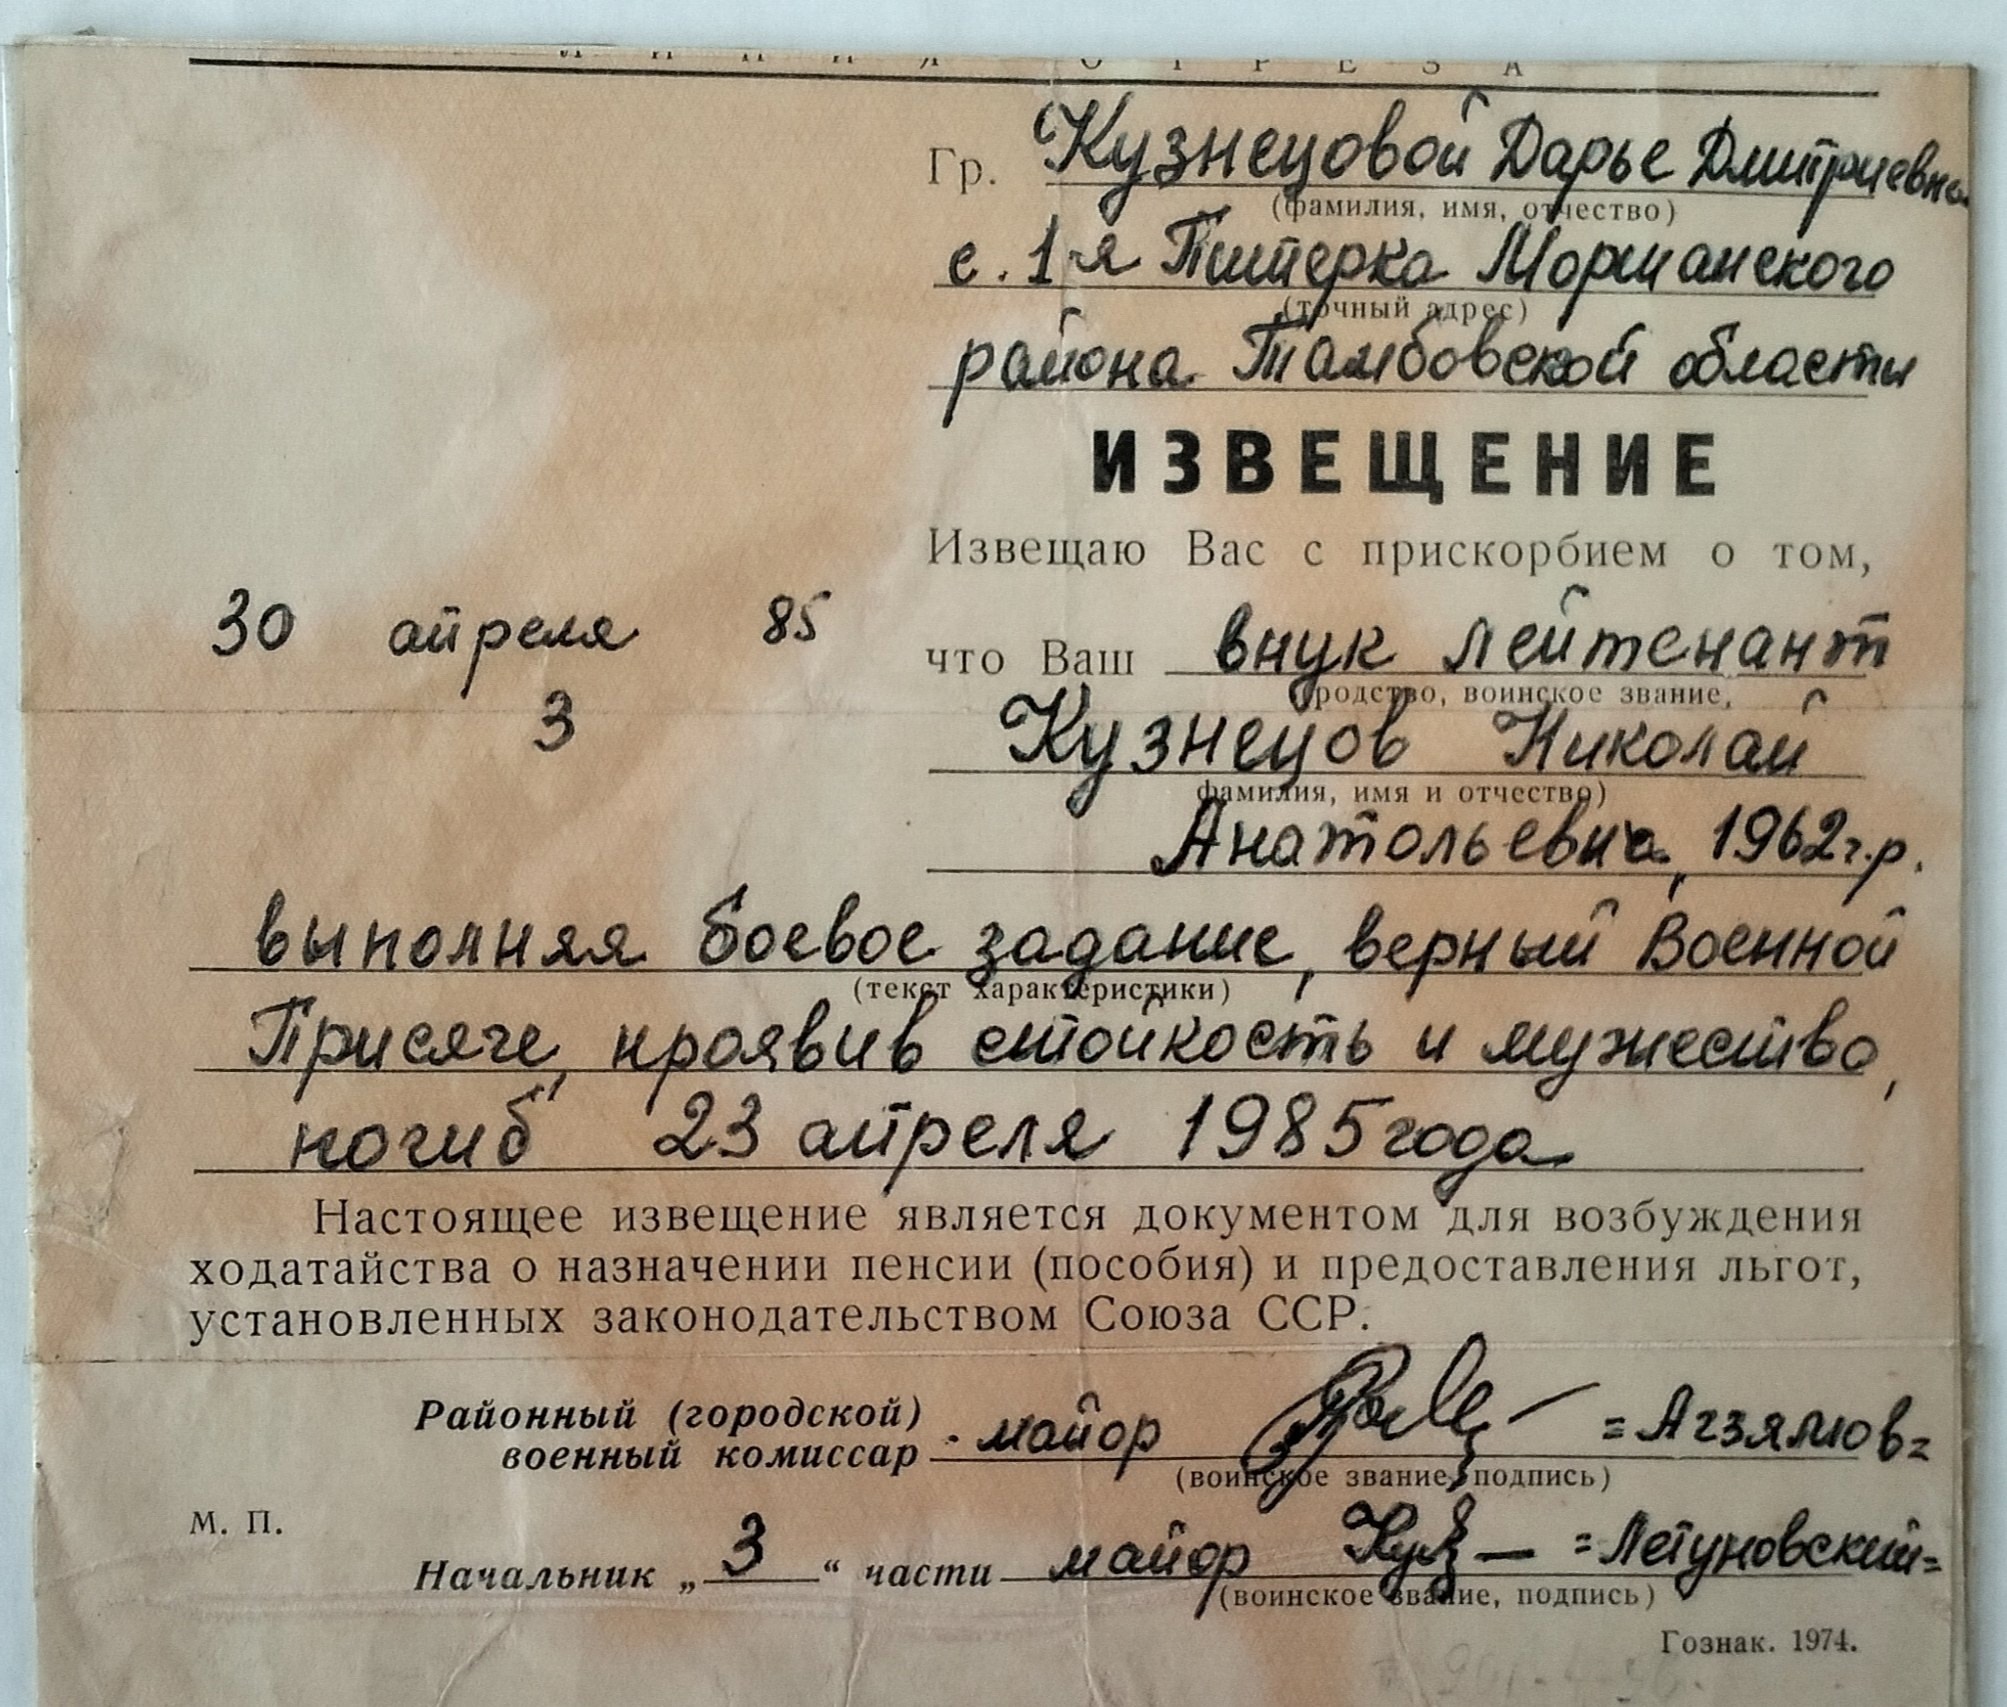 ЛИНИЯ ОТРЕЗА
Гр. Кузнецовой Дарье Дмитриевне
(фамилия, имя, отчество)
с. 1-я Питерка Моршанского
(точный адрес)
района Тамбовской области
ИЗВЕЩЕНИЕ
Извещаю Вас с прискорбием о том,
30 апреля 85
что Ваш внук лейтенант
(родство, воинское звание,
3
Кузнецов Николай
фамилия, имя и отчество)
Анатольевич, 1962 г.р.
выполняя боевое задание, верный Военной
(текст характеристики)
Присяге, проявив стойкость и мужество,
погиб 23 апреля 1985 года
Настоящее извещение является документом для возбуждения
ходатайства о назначении пенсии (пособия) и предоставления льгот,
установленных законодательством Союза ССР.
Районный (городской)
военный комиссар - майор =Агзямов=
(воинское звание, подпись)
М. П.
Начальник „3“ части майор =Летуновский=
(воинское звание, подпись)
Гознак. 1974.